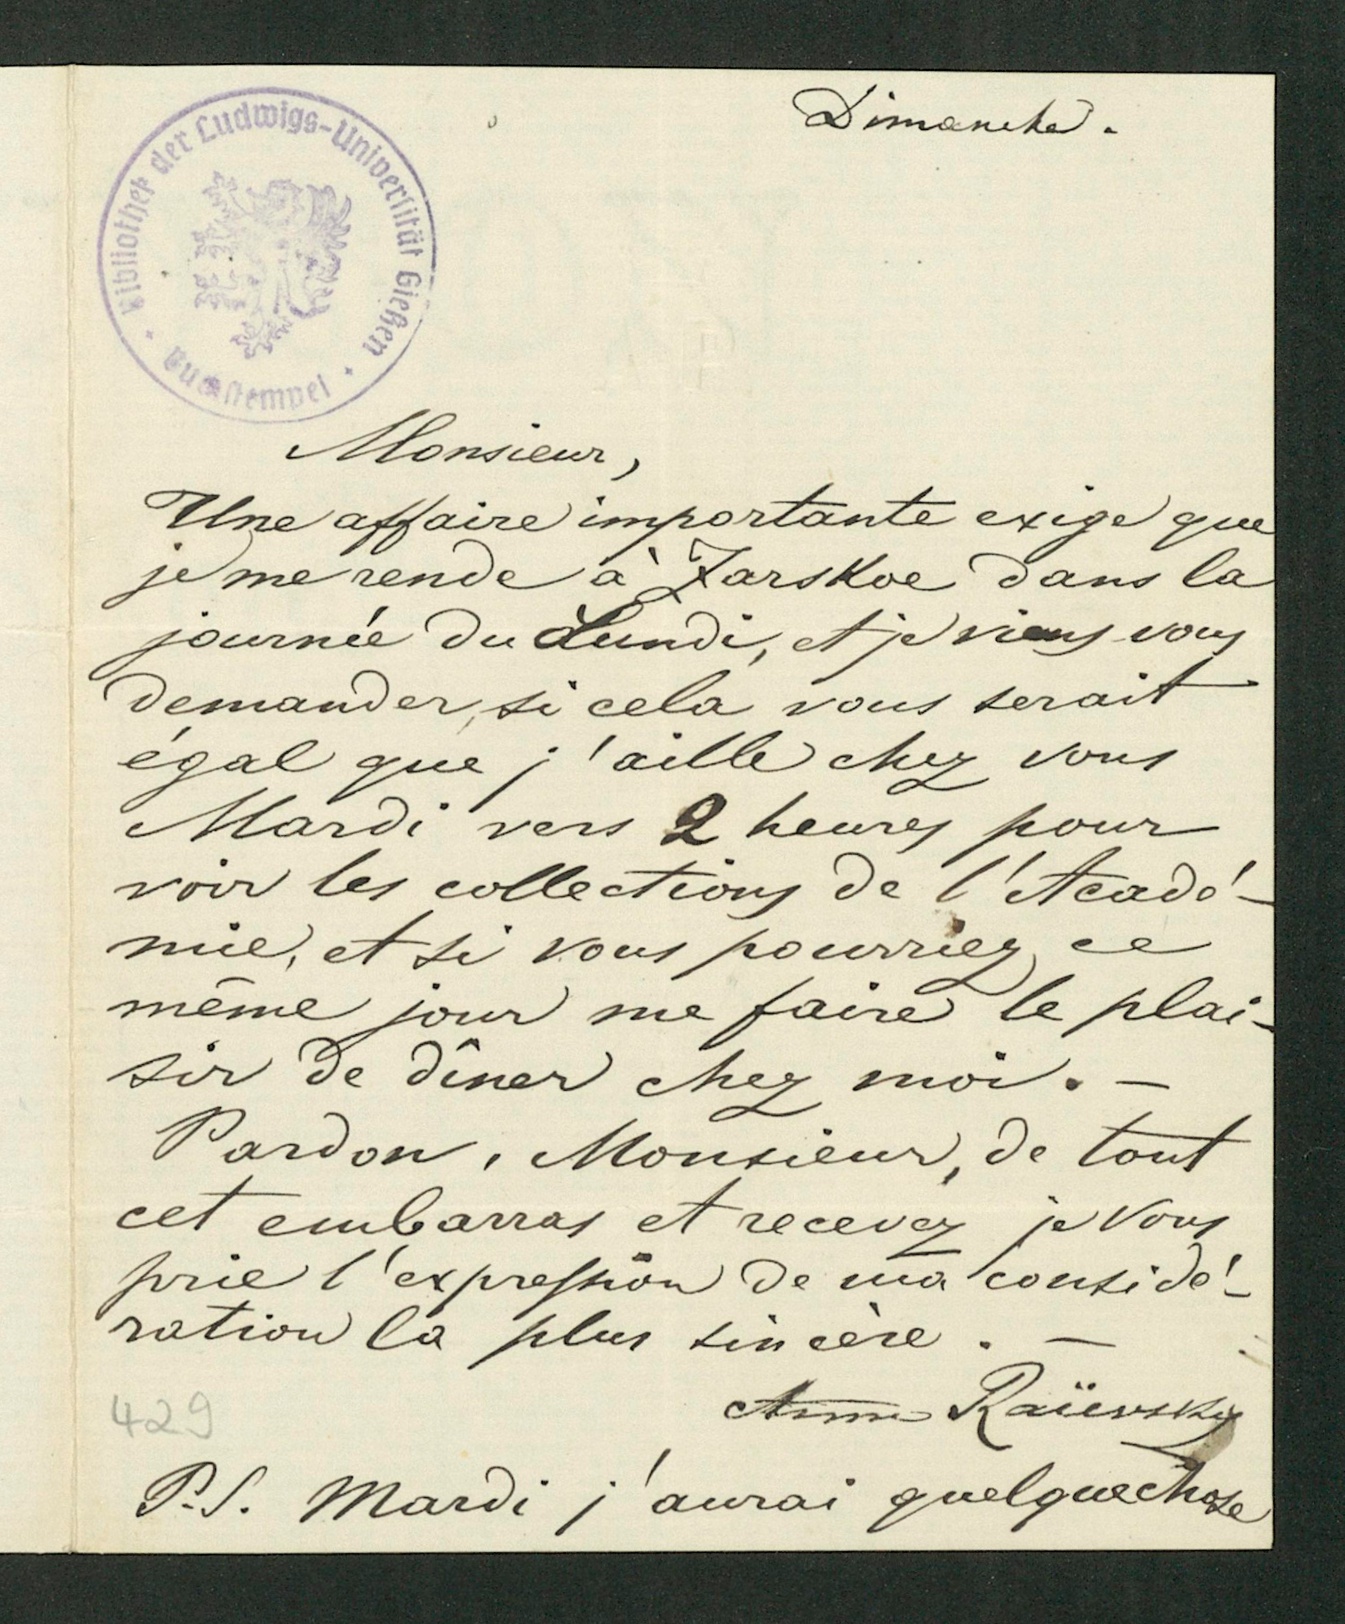 Dimanche.
Bibliothek der Ludwigs-Universität Gießen
Buchstempel
Monsieur,
Une affaire importante exige que
je me rende à Zarskoe dans la
journée du Lundi, et je viens vous
demander, si cela vous serait
égal que j'aille chez vous
Mardi vers 2 heures pour
voir les collections de l'Acadé-
mie, et si vous pourriez ce
même jour me faire le plai-
sir de dîner chez moi. —
Pardon, Monsieur, de tout
cet embarras et recevez je vous
prie l'expression de ma considé-
ration la plus sincère. —
Anna Raïevsky
429
P.S. Mardi j'aurai quelquechose